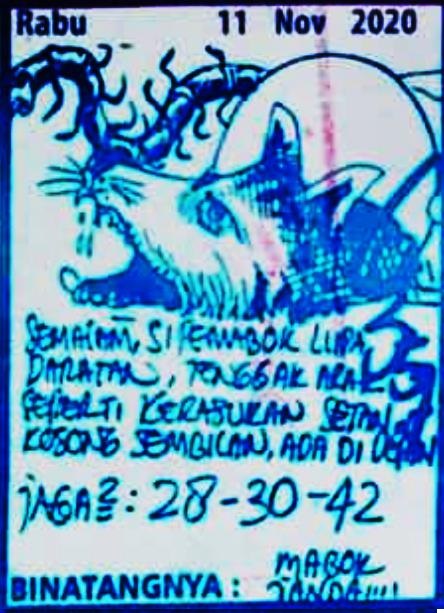 Rabu 11 Nov 2020
SEMALAM, SI PEMABOK LUPA
DARATAN, TENGGAK ARAK
SEPERTI KERASUKAN SETAN,
KOSONG SEMBILAN, ADA DI DEPAN
JAGA2: 28-30-42
BINATANGNYA : MABOK
JANDA!!!!